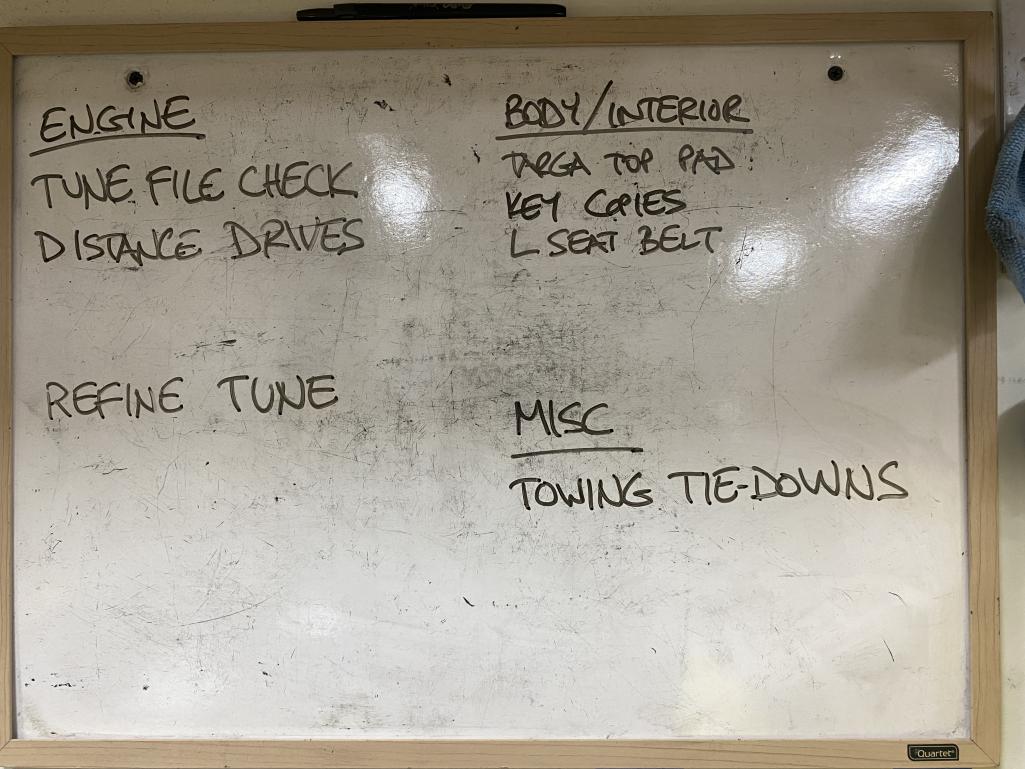 ENGINE
TUNE FILE CHECK
DISTANCE DRIVES
REFINE TUNE
BODY/INTERIOR
TARGA TOP PAD
KEY COPIES
L SEAT BELT
MISC
TOWING TIE-DOWNS
Quartet